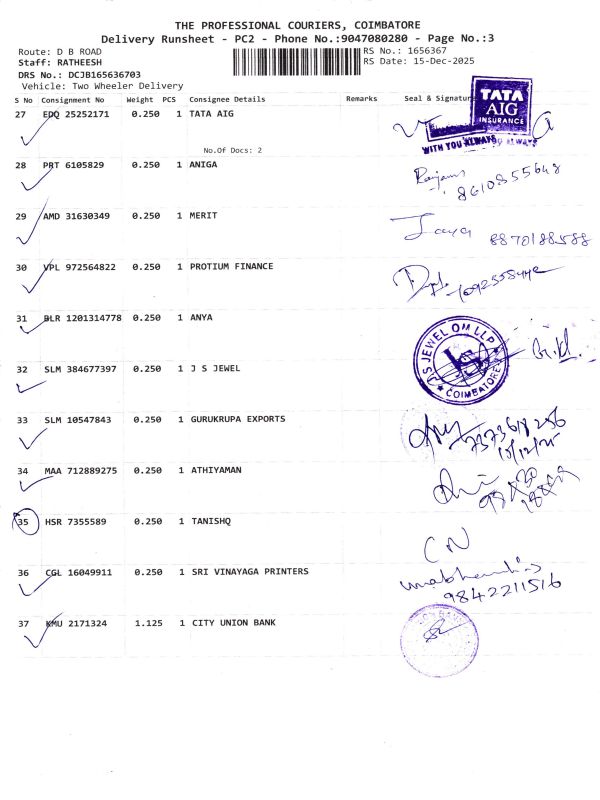 THE PROFESSIONAL COURIERS, COIMBATORE
Delivery Runsheet - PC2 - Phone No.:9047080280 - Page No.:3
Route: D B ROAD
RS No.: 1656367
Staff: RATHEESH
RS Date: 15-Dec-2025
DRS No.: DCJB165636703
Vehicle: Two Wheeler Delivery
S No Consignment No Weight PCS Consignee Details Remarks Seal & Signature
27 EDQ 25252171 0.250 1 TATA AIG
TATA
AIG
INSURANCE
WITH YOU ALWAYS
No.Of Docs: 2
28 PRT 6105829 0.250 1 ANIGA
8610855648
29 AMD 31630349 0.250 1 MERIT
Jaya 8870188588
30 VPL 972564822 0.250 1 PROTIUM FINANCE
31 BLR 1201314778 0.250 1 ANYA
JS JEWEL OM LLP
COIMBATORE
32 SLM 384677397 0.250 1 J S JEWEL
33 SLM 10547843 0.250 1 GURUKRUPA EXPORTS
34 MAA 712889275 0.250 1 ATHIYAMAN
35 HSR 7355589 0.250 1 TANISHQ
CN
36 CGL 16049911 0.250 1 SRI VINAYAGA PRINTERS
9842211516
37 KMU 2171324 1.125 1 CITY UNION BANK